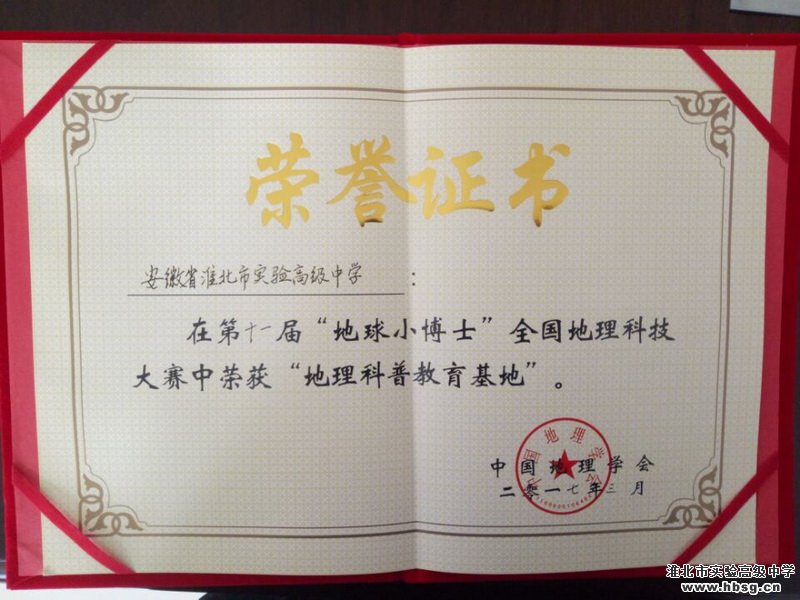 荣誉证书
安徽省淮北市实验高级中学：
在第十一届“地球小博士”全国地理科技
大赛中荣获“地理科普教育基地”。
中国地理学会
二零一七年三月
中国地理学会
淮北市实验高级中学
www.hbsg.cn